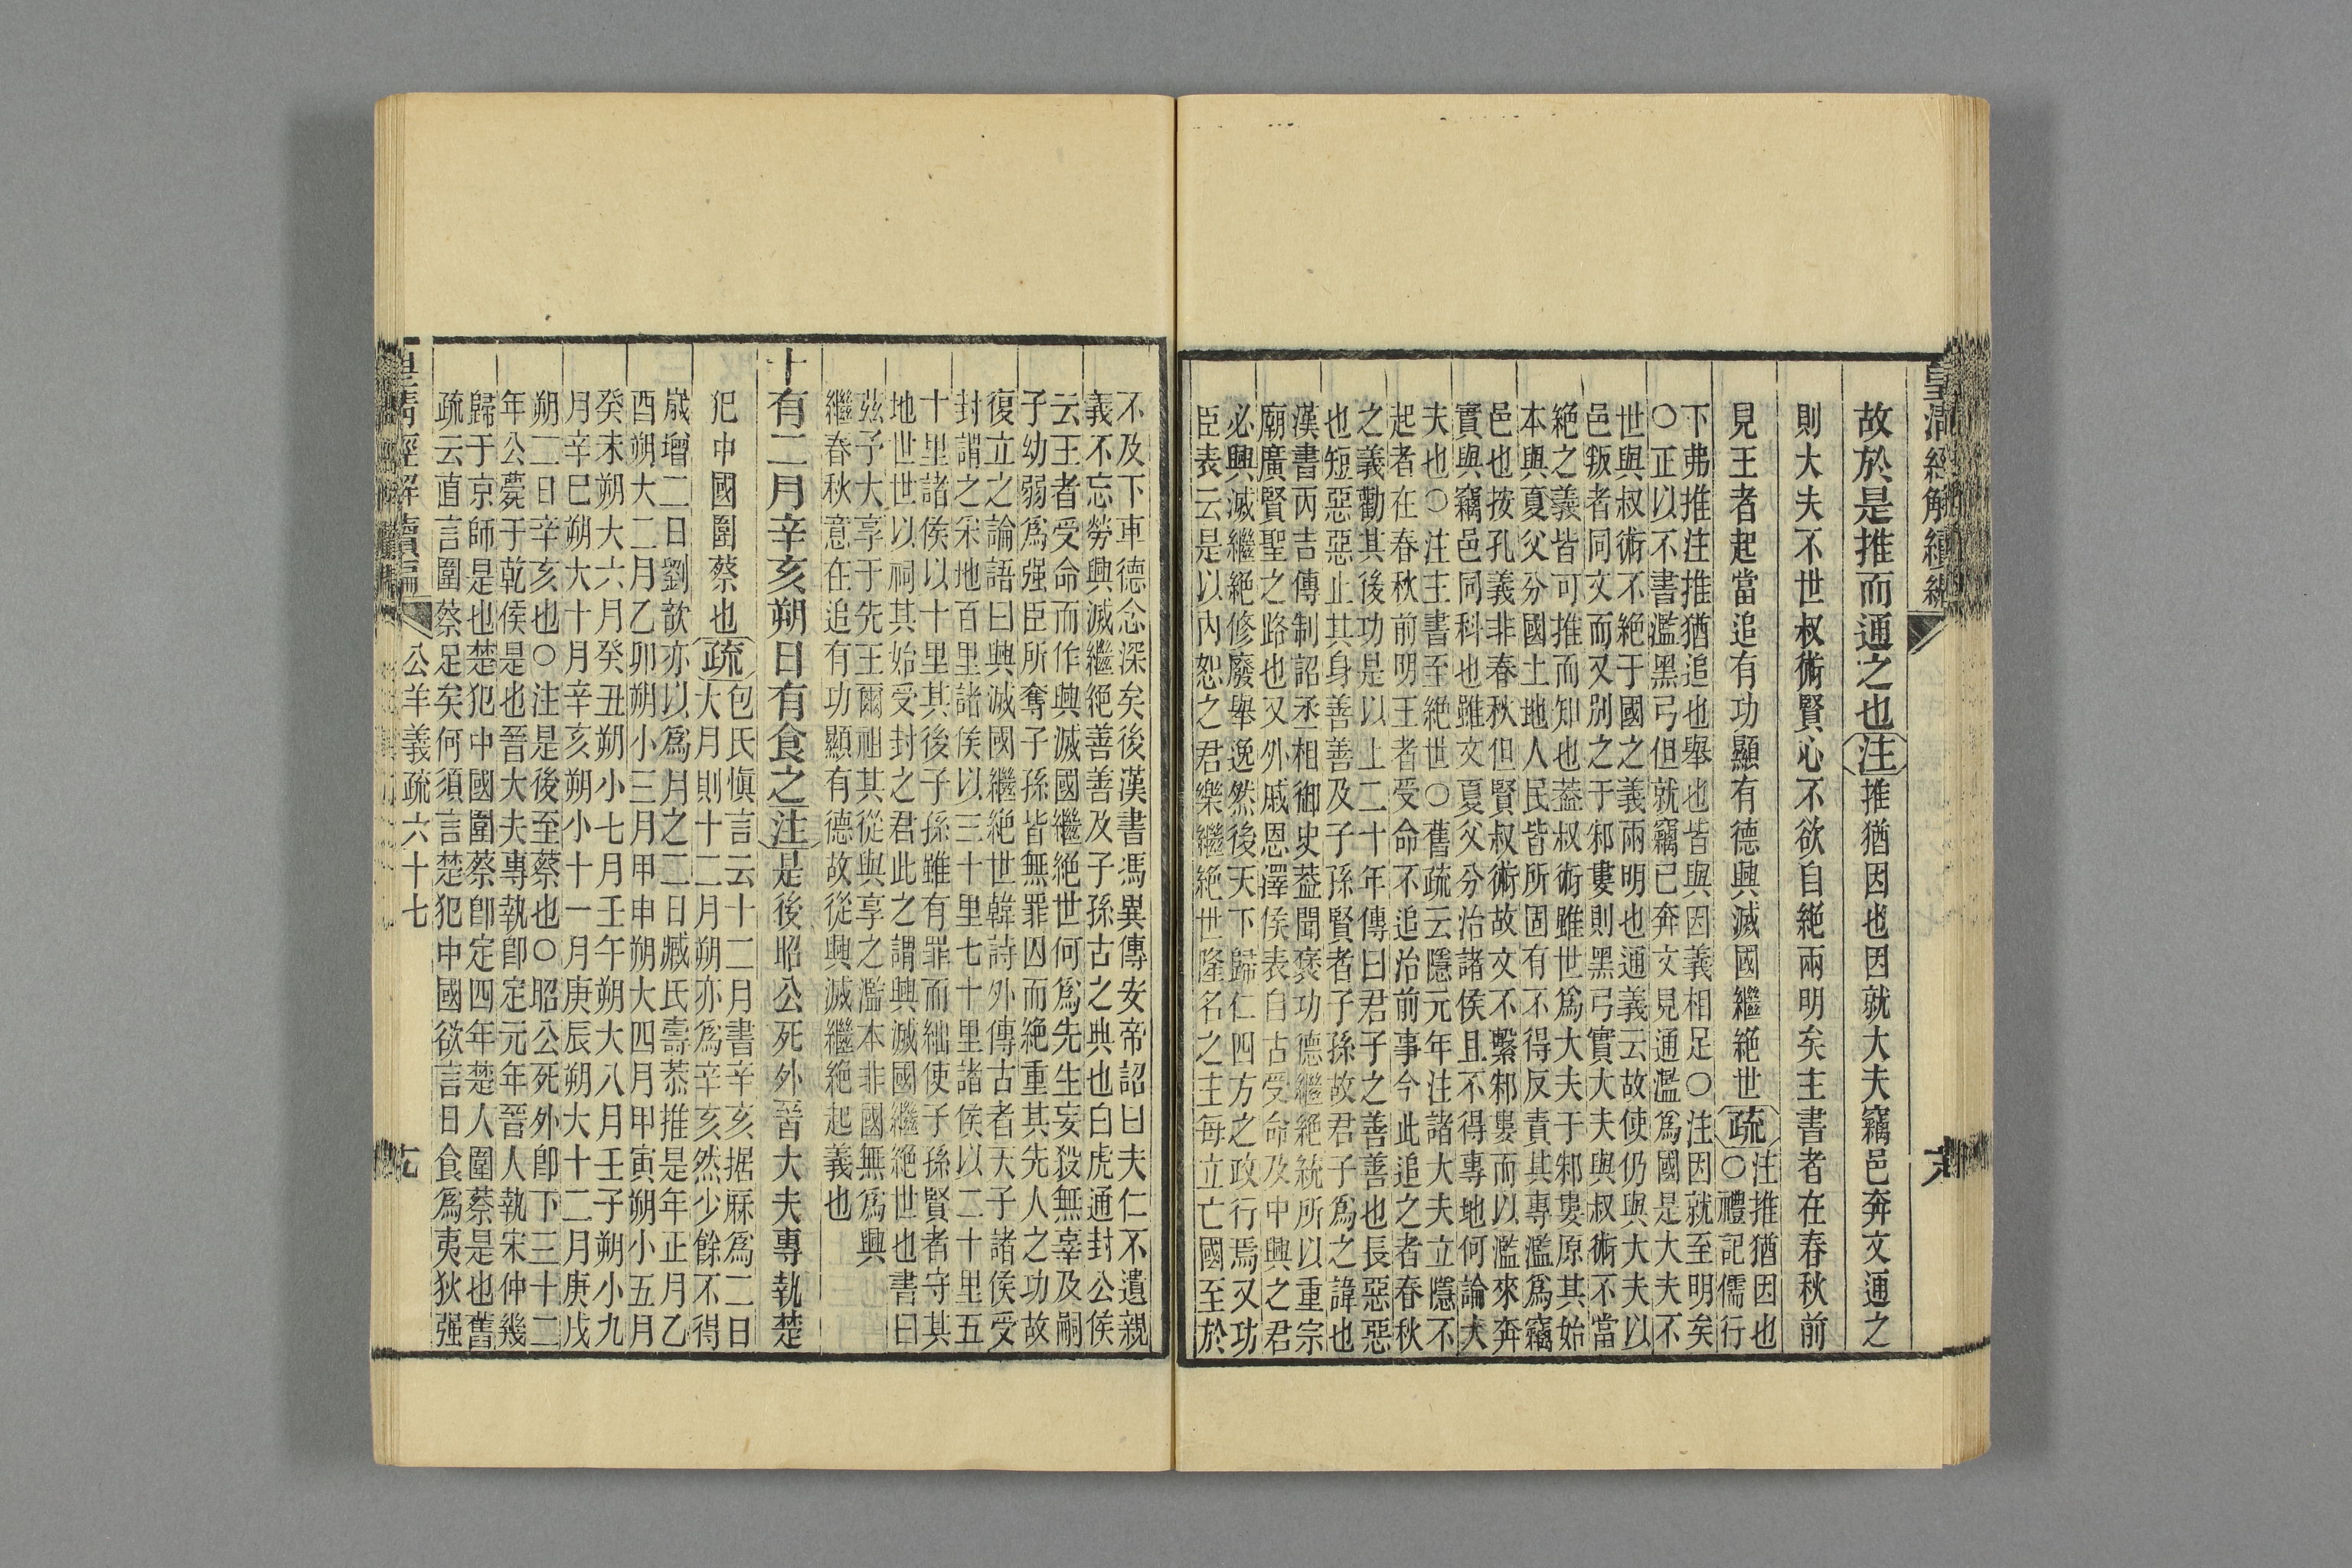 皇清經解續編
故於是推而通之也注推猶因也因就大夫竊邑奔文通之
則大夫不世叔術賢心不欲自絕兩明矣主書者在春秋前
見王者起當追有功顯有德興滅國繼絕世疏注推猶因也
○禮記儒行
下弗推注推猶追也舉也皆與因義相足○注因就至明矣
○正以不書濫黑弓但就竊已奔文見通濫爲國是大夫不
世與叔術不絕于國之義兩明也通義云故使仍與大夫以
邑叛者同文而又別之于邾婁則黑弓實大夫與叔術不當
絕之義皆可推而知也葢叔術雖世爲大夫于邾婁原其始
本與夏父分國土地人民皆所固有不得反責其專濫爲竊
邑也按孔義非春秋但賢叔術故文不繫邾婁而以濫來奔
實與竊邑同科也雖文夏父分治諸侯且不得專地何論大
夫也○注主書至絕世○舊疏云隱元年注諸大夫立隱不
起者在春秋前明王者受命不追治前事今此追之者春秋
之義勸其後功是以上二十年傳曰君子之善善也長惡惡
也短惡惡止其身善善及子孫賢者子孫故君子爲之諱也
漢書丙吉傳制詔丞相御史葢聞褒功德繼絕統所以重宗
廟廣賢聖之路也又外戚恩澤侯表自古受命及中興之君
必興滅繼絕修廢舉逸然後天下歸仁四方之政行焉又功
臣表云是以內恕之君樂繼絕世隆名之主每立亡國至於
不及下車德念深矣後漢書馮異傳安帝詔曰夫仁不遺親
義不忘勞興滅繼絕善善及子孫古之典也白虎通封公侯
云王者受命而作興滅國繼絕世何爲先生妄殺無辜及嗣
子幼弱爲强臣所奪子孫皆無罪囚而絕重其先人之功故
復立之論語曰興滅國繼絕世韓詩外傳古者天子諸侯受
封謂之采地百里諸侯以三十里七十里諸侯以二十里五
十里諸侯以十里其後子孫雖有罪而絀使子孫賢者守其
地世世以祠其始受封之君此之謂興滅國繼絕世也書曰
茲予大享于先王爾祖其從與享之濫本非國無爲興
繼春秋意在追有功顯有德故從興滅繼絕起義也
十有二月辛亥朔日有食之注是後昭公死外晉大夫專執楚
犯中國圍蔡也疏包氏愼言云十二月書辛亥据厤爲二日
大月則十二月朔亦爲辛亥然少餘不得
歲增二日劉歆亦以爲月之二日臧氏壽恭推是年正月乙
酉朔大二月乙卯朔小三月甲申朔大四月甲寅朔小五月
癸未朔大六月癸丑朔小七月壬午朔大八月壬子朔小九
月辛巳朔大十月辛亥朔小十一月庚辰朔大十二月庚戌
朔二日辛亥也○注是後至蔡也○昭公死外卽下三十二
年公薨于乾侯是也晉大夫專執卽定元年晉人執宋仲幾
歸于京師是也楚犯中國圍蔡卽定四年楚人圍蔡是也舊
疏云直言圍蔡足矣何須言楚犯中國欲言日食爲夷狄强
皇清經解續編
公羊義疏六十七